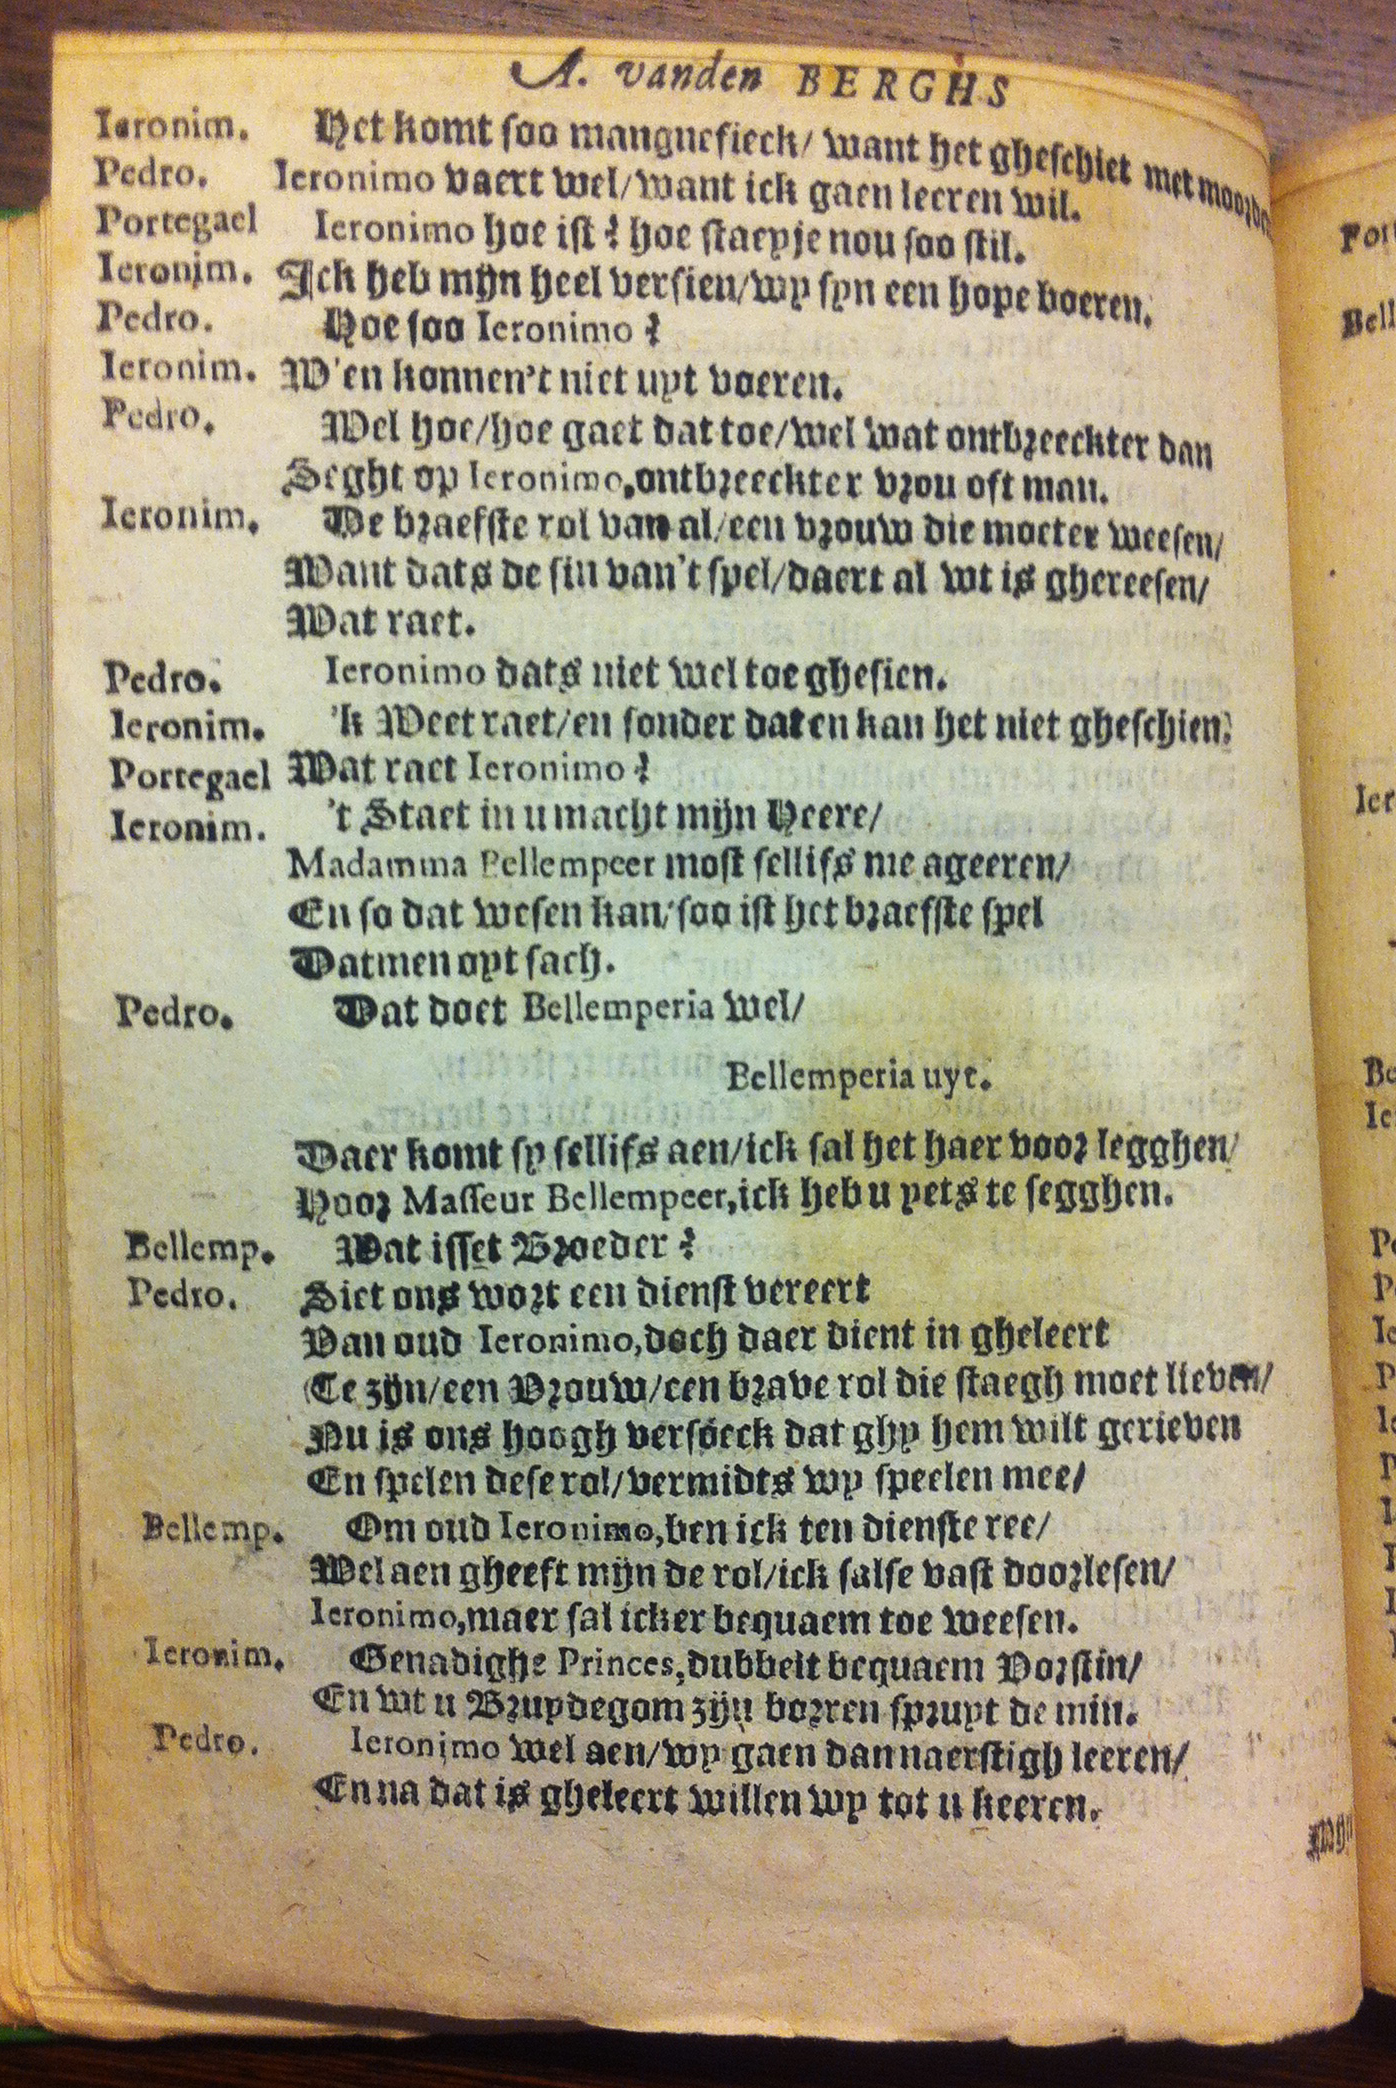 A. vanden BERGHS
Ieronim. Het komt soo manguefieck/ want het gheschiet met
Pedro. Ieronimo vaert wel/want ick gaen leeren wil.
Portegael Ieronimo hoe ist? hoe staepje nou soo stil.
Ieronim. Ick heb mijn heel versien/wy syn een hope boeren.
Pedro. Hoe soo Ieronimo?
Ieronim. W'en konnen't niet uyt voeren.
Pedro. Wel hoe/hoe gaet dat toe/wel wat ontbreeckter dan
Seght op Ieronimo,ontbreeckter vrou oft man.
Ieronim. De braefste rol van al/een vrouw die moeter weesen/
Want dats de sin van't spel/daert al wt is ghereesen/
Wat raet.
Pedro. Ieronimo dats niet wel toe ghesien.
Ieronim. 'k Weet raet/en sonder dat en kan het niet gheschien.
Portegael Wat raet Ieronimo?
Ieronim. 't Staet in u macht mijn Heere/
Madamma Bellempeer most sellifs me ageeren/
En so dat wesen kan/soo ist het braefste spel
Datmen oyt sach.
Pedro. Dat doet Bellemperia wel/
Bellemperia uyt.
Daer komt sy sellifs aen/ick sal het haer voor legghen/
Hoor Masseur Bellempeer,ick heb u yets te segghen.
Bellemp. Wat isset Broeder?
Pedro. Siet ons wort een dienst vereert
Van oud Ieronimo,doch daer dient in gheleert
Te zijn/een Vrouw/een brave rol die staegh moet lieven/
Nu is ons hoogh versoeck dat ghy hem wilt gerieven
En spelen dese rol/vermidts wy speelen mee/
Bellemp. Om oud Ieronimo,ben ick ten dienste ree/
Wel aen gheeft mijn de rol/ick salse vast doorlesen/
Ieronimo,maer sal icker bequaem toe weesen.
Ieronim. Genadighe Princes,dubbelt bequaem Vorstin/
En wt u Bruydegom zijn borren spruyt de min.
Pedro. Ieronimo wel aen/wy gaen dan naerstigh leeren/
En na dat is gheleert willen wy tot u keeren.